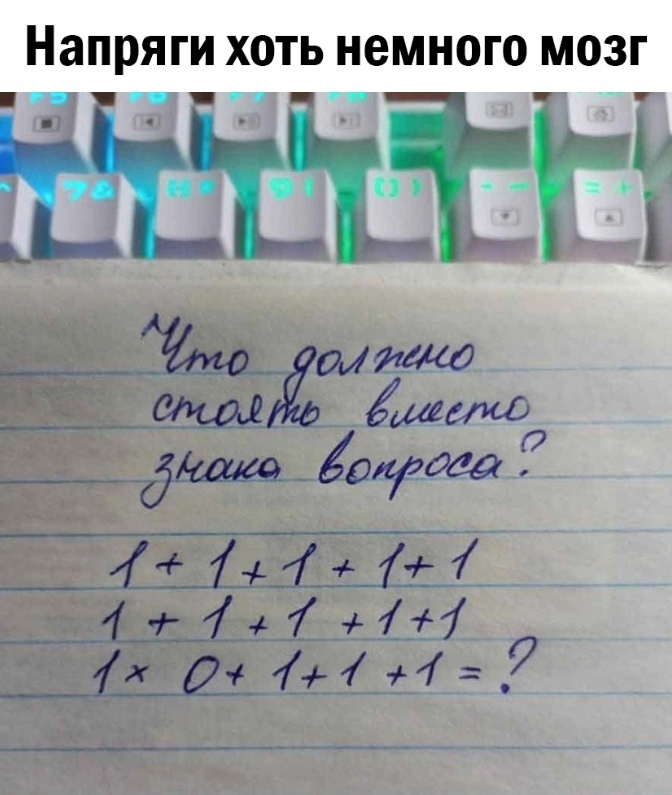 Напряги хоть немного мозг
F5
F6
F7
F8
7 &
8 *
9 (
0 )
- -
= +
Что должно
стоять вместо
знака вопроса?
1 + 1 + 1 + 1 + 1
1 + 1 + 1 + 1 + 1
1 × 0 + 1 + 1 + 1 = ?